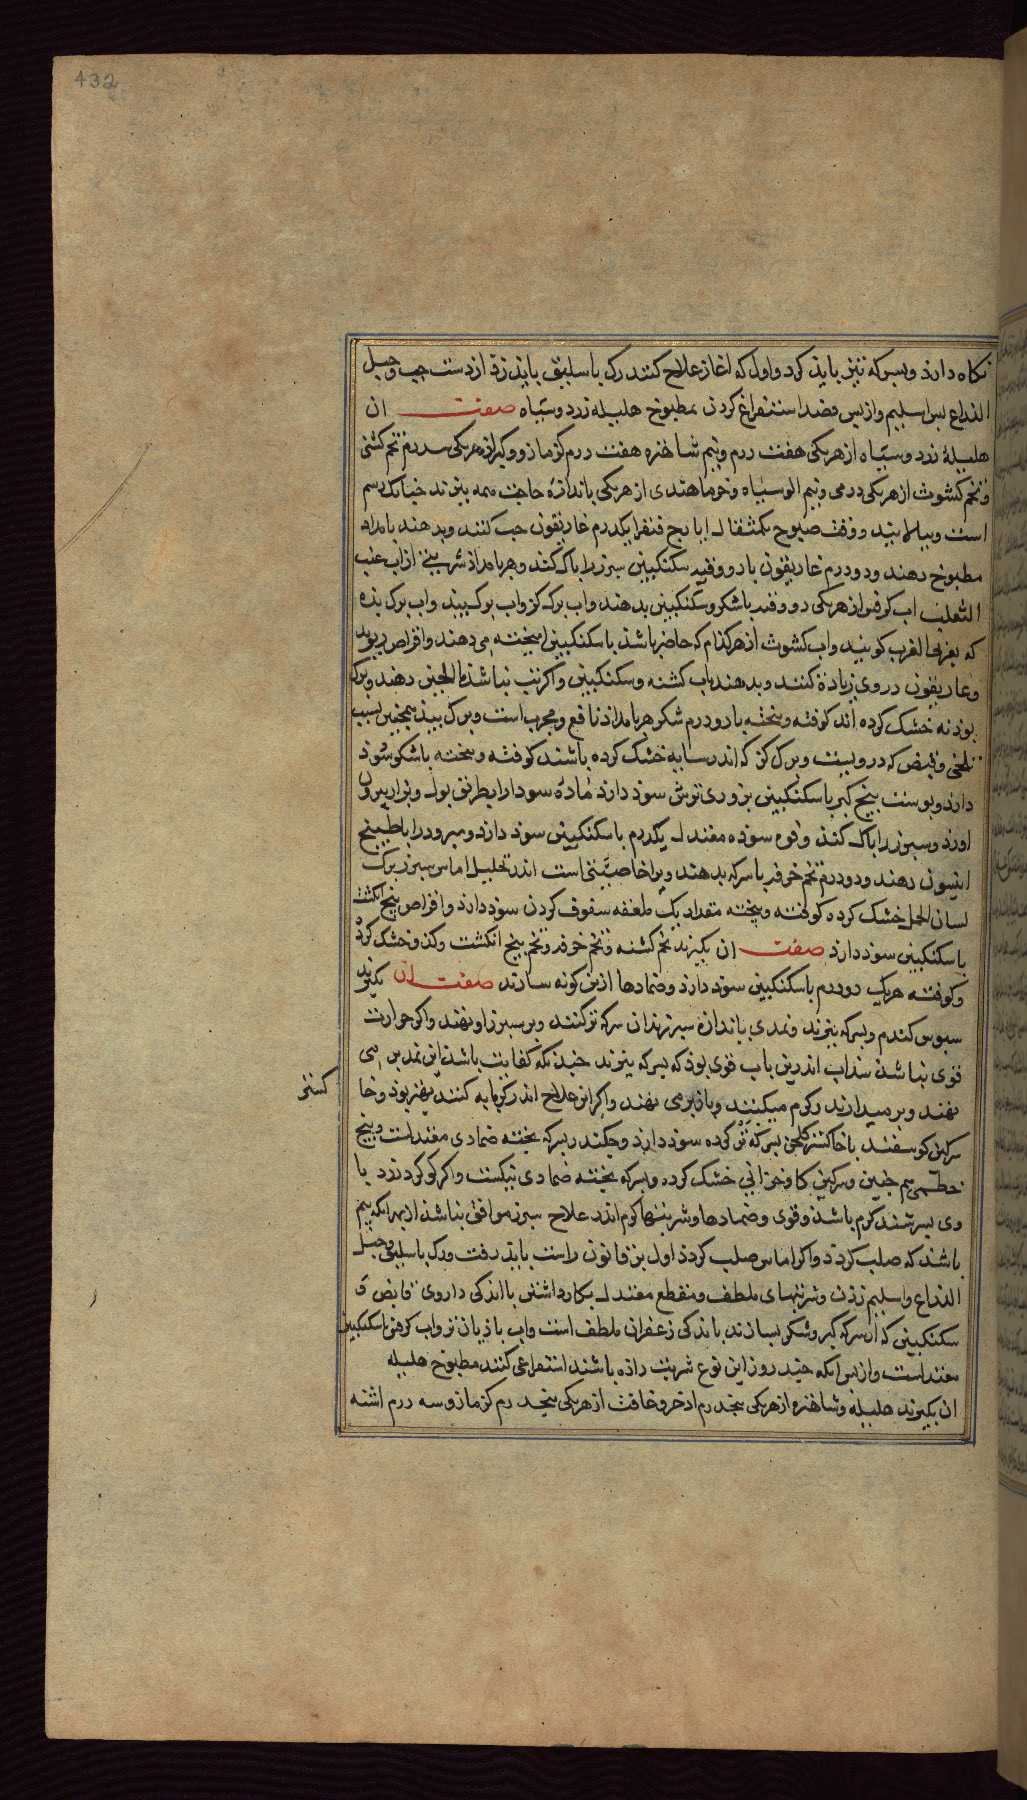 432
نکاه دارد وبسرکه تیز باید کرد واول که اغاز علاج کنند رک باسلیق باید زد از دست چپ وحبل
الذراع بس اسیلم وازبس فصد استفراغ کردن بمطبوخ هلیله زرد وسیاه صفت ان
هلیلهٔ زرد وسیاه از هریکی هفت درم ونیم شاهتره هفت درم کزمازو وکبر از هریکی سه درم تخم کشنی
وتخم کشوث از هریکی درمی ونیم الو سیاه وخرما هندی از هریکی باندازهٔ حاجت همه بپزند چنانک رسم
است وبپالایند ووقت صبوح یکمثقال ایارج فیقرا یکدرم غاریقون حب کنند وبدهند بامداد
مطبوخ دهند ودودرم غاریقون با دو وقیه سکنکبین سبرز را باک کند وهر بامداد شربتی از اب عنب
الثعلب اب کرفس از هریکی دو وقیه باشکر وسکنکبین بدهند واب برک کز واب برک بید واب برک بده
که بعربی الغرب کویند واب کشوث از هرکدام که حاضر باشد با سکنکبین امیخته می دهند واقراص ریوند
وغاریقون در وی زیادة کنند وبدهند باب کشنه وسکنکبین واکر تب نباشد ماالجبن دهند وبرک
بودنه خشک کرده اند کوفته وبیخته با دودرم شکر هر بامداد نافع ومجرب است وبرک بید همچنین بسبب
تلخی وقبض که دروییست وبرک کز که اندر سایه خشک کرده باشند کوفته وبیخته باشکر سود
دارد وبوست بیخ کبر با سکنکبین بزوری ترش سود دارد مادهٔ سودا را بطریق بول وبراز بیرون
اورد وسبرز را باک کند وفوه سوده مقدار یکدرم با سکنکبین سود دارد ومبرود را باطبیخ
انیسون دهند ودودرم تخم خرفه باسرکه بدهند ویرا خاصیتی است اندر تحلیل اماس سبرز برک
لسان الحمل خشک کرده کوفته وبیخته مقدار یک ملعقه سفوف کردن سود دارد واقراص بنج انکشت
با سکنکبین سود دارد صفت ان بکیرند تخم کشنه وتخم خرفه وتخم بنج انکشت وکدو خشک کرده
وکوفته هریک دودرم با سکنکبین سود دارد وضمادها ازین کونه سازند صفت ان بکیرند
سبوس کندم وبسرکه بپزند ونمدی باندازه سبرز بدان سرکه تر کنند وبر سبرز او نهند واکر حرارت
قوی نباشد سذاب اندرین باب قوی بود که بسرکه بپزند چندنکه کفایت باشد این نمد بر می
نهند وبر میدارند وکرم میکنند وباز برمی نهند واکر این علاج اندر کرمابه کنند بهتر بود وخا
کستر
سرکین کوسفند با خاکستر کلخن بسرکه تر کرده سود دارد وجکندر بسرکه بخته ضمادی مفید است وبیخ
خطمی هم چنین وسرکین کاو خزانی خشک کرده وبسرکه بخته ضمادی نیکست واکر کوکرد زرد با
وی بسرشند کرم باشد وقوی وضمادها وشربتها کرم اندر علاج سبرز موافق نباشد از بهر انکه بیم
باشد که صلب کردد واکر اماس صلب کردد اول برین قانون راست باید رفت ورک باسلیق وحبل
الذراع واسیلم زدن وشربتهای ملطف ومقطع مقند ار بکار داشتن با اندکی داروی قابض و
سکنکبینی که از سرکه کبر وشکر بسازند باندکی زعفران ملطف است واب بادیان تر واب کرفس با سکنکبین
مفید است وازبس انکه چند روز این نوع شربت داده باشند استفراغی کنند مطبوخ هلیله
ان بکیرند هلیله وشاهتره از هریکی پنجدرم اذخر وغافت از هریکی پنجدرم کزمازو سه درم اشنه